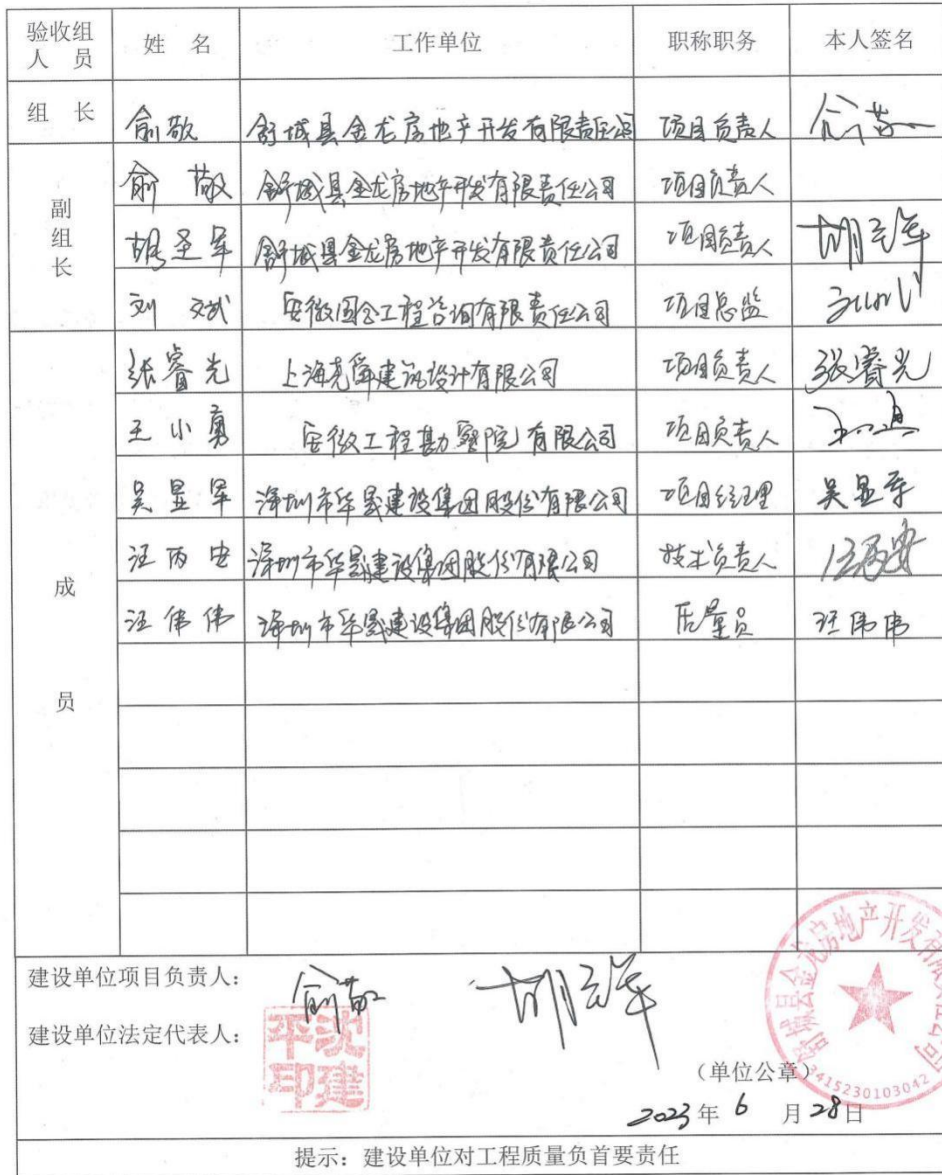 验收组人员 姓 名 工作单位 职称职务 本人签名
组 长 俞敬 舒城县金龙房地产开发有限责任公司 项目负责人 俞敬
副组长 俞敬 舒城县金龙房地产开发有限责任公司 项目负责人
胡圣军 舒城县金龙房地产开发有限责任公司 项目负责人 胡圣军
刘斌 安徽国合工程咨询有限责任公司 项目总监
成员 张睿光 上海尧舜建筑设计有限公司 项目负责人 张睿光
王小勇 安徽工程勘察院有限公司 项目负责人
吴显军 深圳市华晟建设集团股份有限公司 项目经理 吴显军
汪丙安 深圳市华晟建设集团股份有限公司 技术负责人 汪丙安
汪伟伟 深圳市华晟建设集团股份有限公司 质量员 汪伟伟
建设单位项目负责人： 俞敬 胡圣军
建设单位法定代表人： 沈建平印
舒城县金龙房地产开发有限责任公司
3415230103042
（单位公章）
2023年 6 月 28日
提示：建设单位对工程质量负首要责任